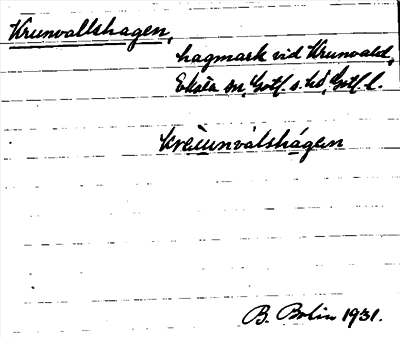 Krunvallshagen,
hagmark vid Krunvald,
Eksta sn, Gotl. s. hd, Gotl. l.
krèiunvàlshágen
B. Bolin 1931.